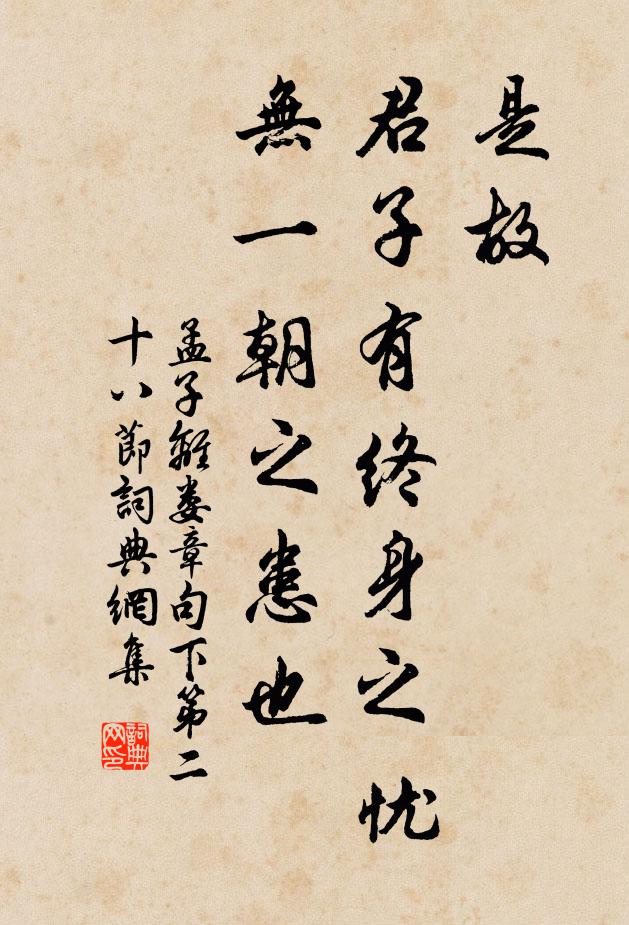 是故
君子有終身之忧
無一朝之患也
孟子離娄章句下第二
十八節詞典網集
詞典
网印